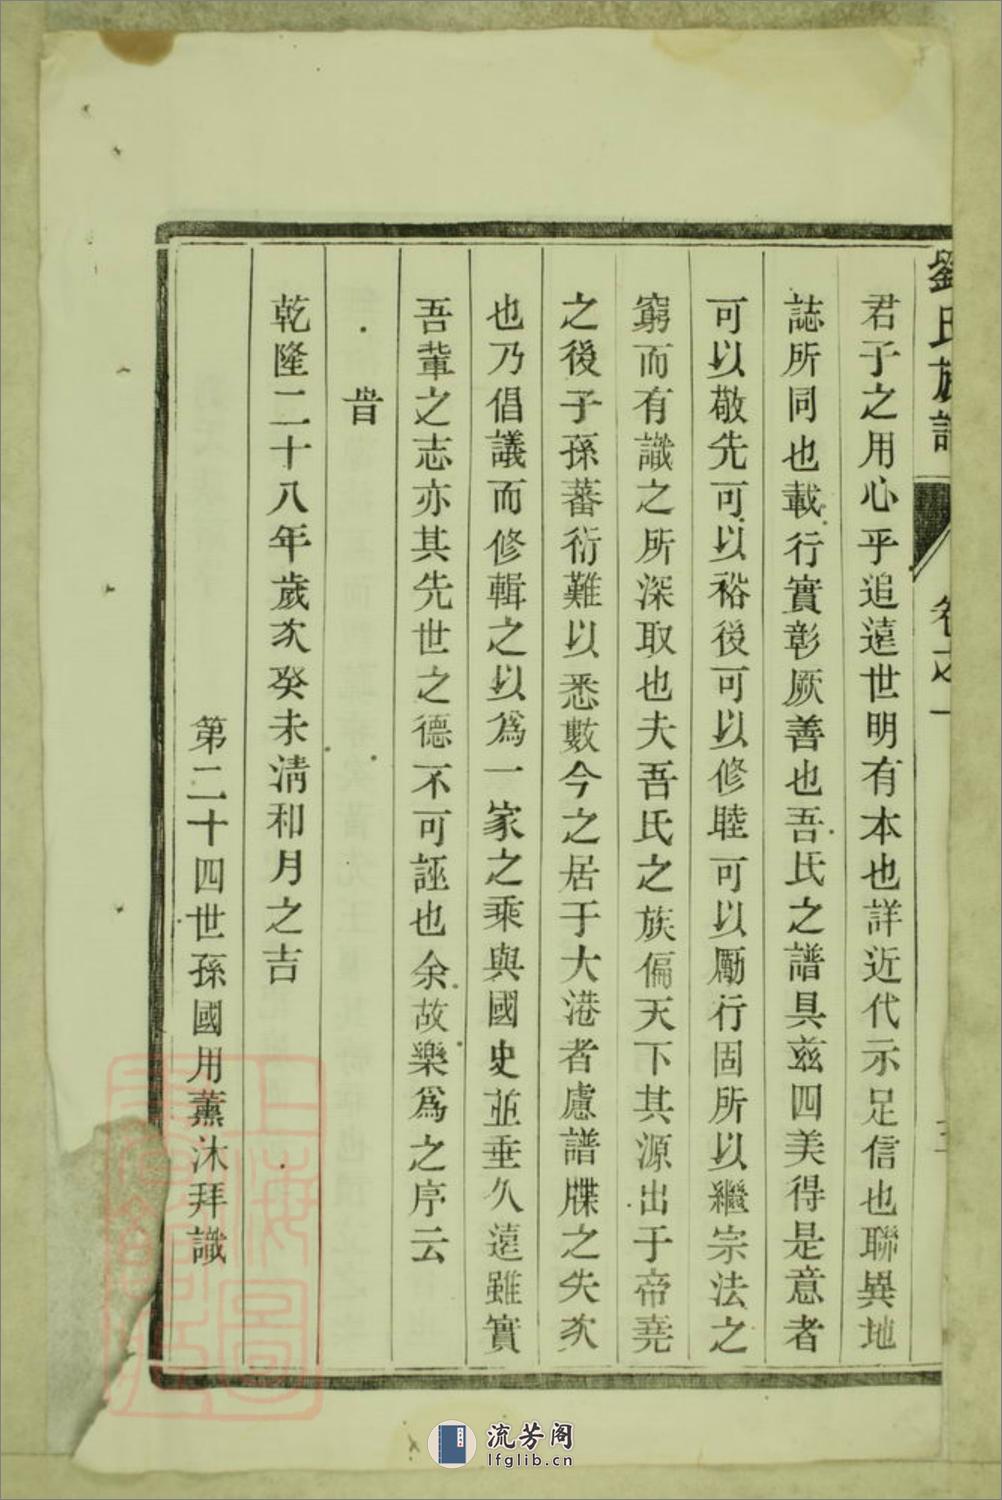 劉氏族譜 卷之一
君子之用心乎追遠世明有本也詳近代示足信也聯異地
誌所同也載行實彰厥善也吾氏之譜具兹四美得是意者
可以敬先可以裕後可以修睦可以勵行固所以繼宗法之
窮而有識之所深取也夫吾氏之族偏天下其源出于帝堯
之後子孫蕃衍難以悉數今之居于大港者慮譜牒之失次
也乃倡議而修輯之以爲一家之乘與國史並垂久遠雖實
吾輩之志亦其先世之德不可誣也余故樂爲之序云
旹
乾隆二十八年歲次癸未清和月之吉
第二十四世孫國用薰沐拜識
流芳阁
lfglib.cn